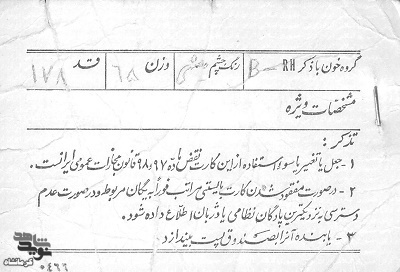 گروه خون با ذکر RH B- رنگ چشم مشکی وزن ۶۸ قد ۱۷۸
مشخصات ویژه
تذکر :
۱- جعل یا تغییر یا سوء استفاده از این کارت نقض ماده ۹۷ و ۹۸ قانون مجازات عمومی ایران است .
۲- در صورت مفقود شدن کارت بایستی مراتب فوراً به یگان مربوط و در صورت عدم
دسترسی به نزدیکترین پادگان نظامی یا شهربانی اطلاع داده شود .
۳- یابنده آنرا بصندوق پست بیندازد
نوید شاهد
کرمانشاه
۰۴۶۶